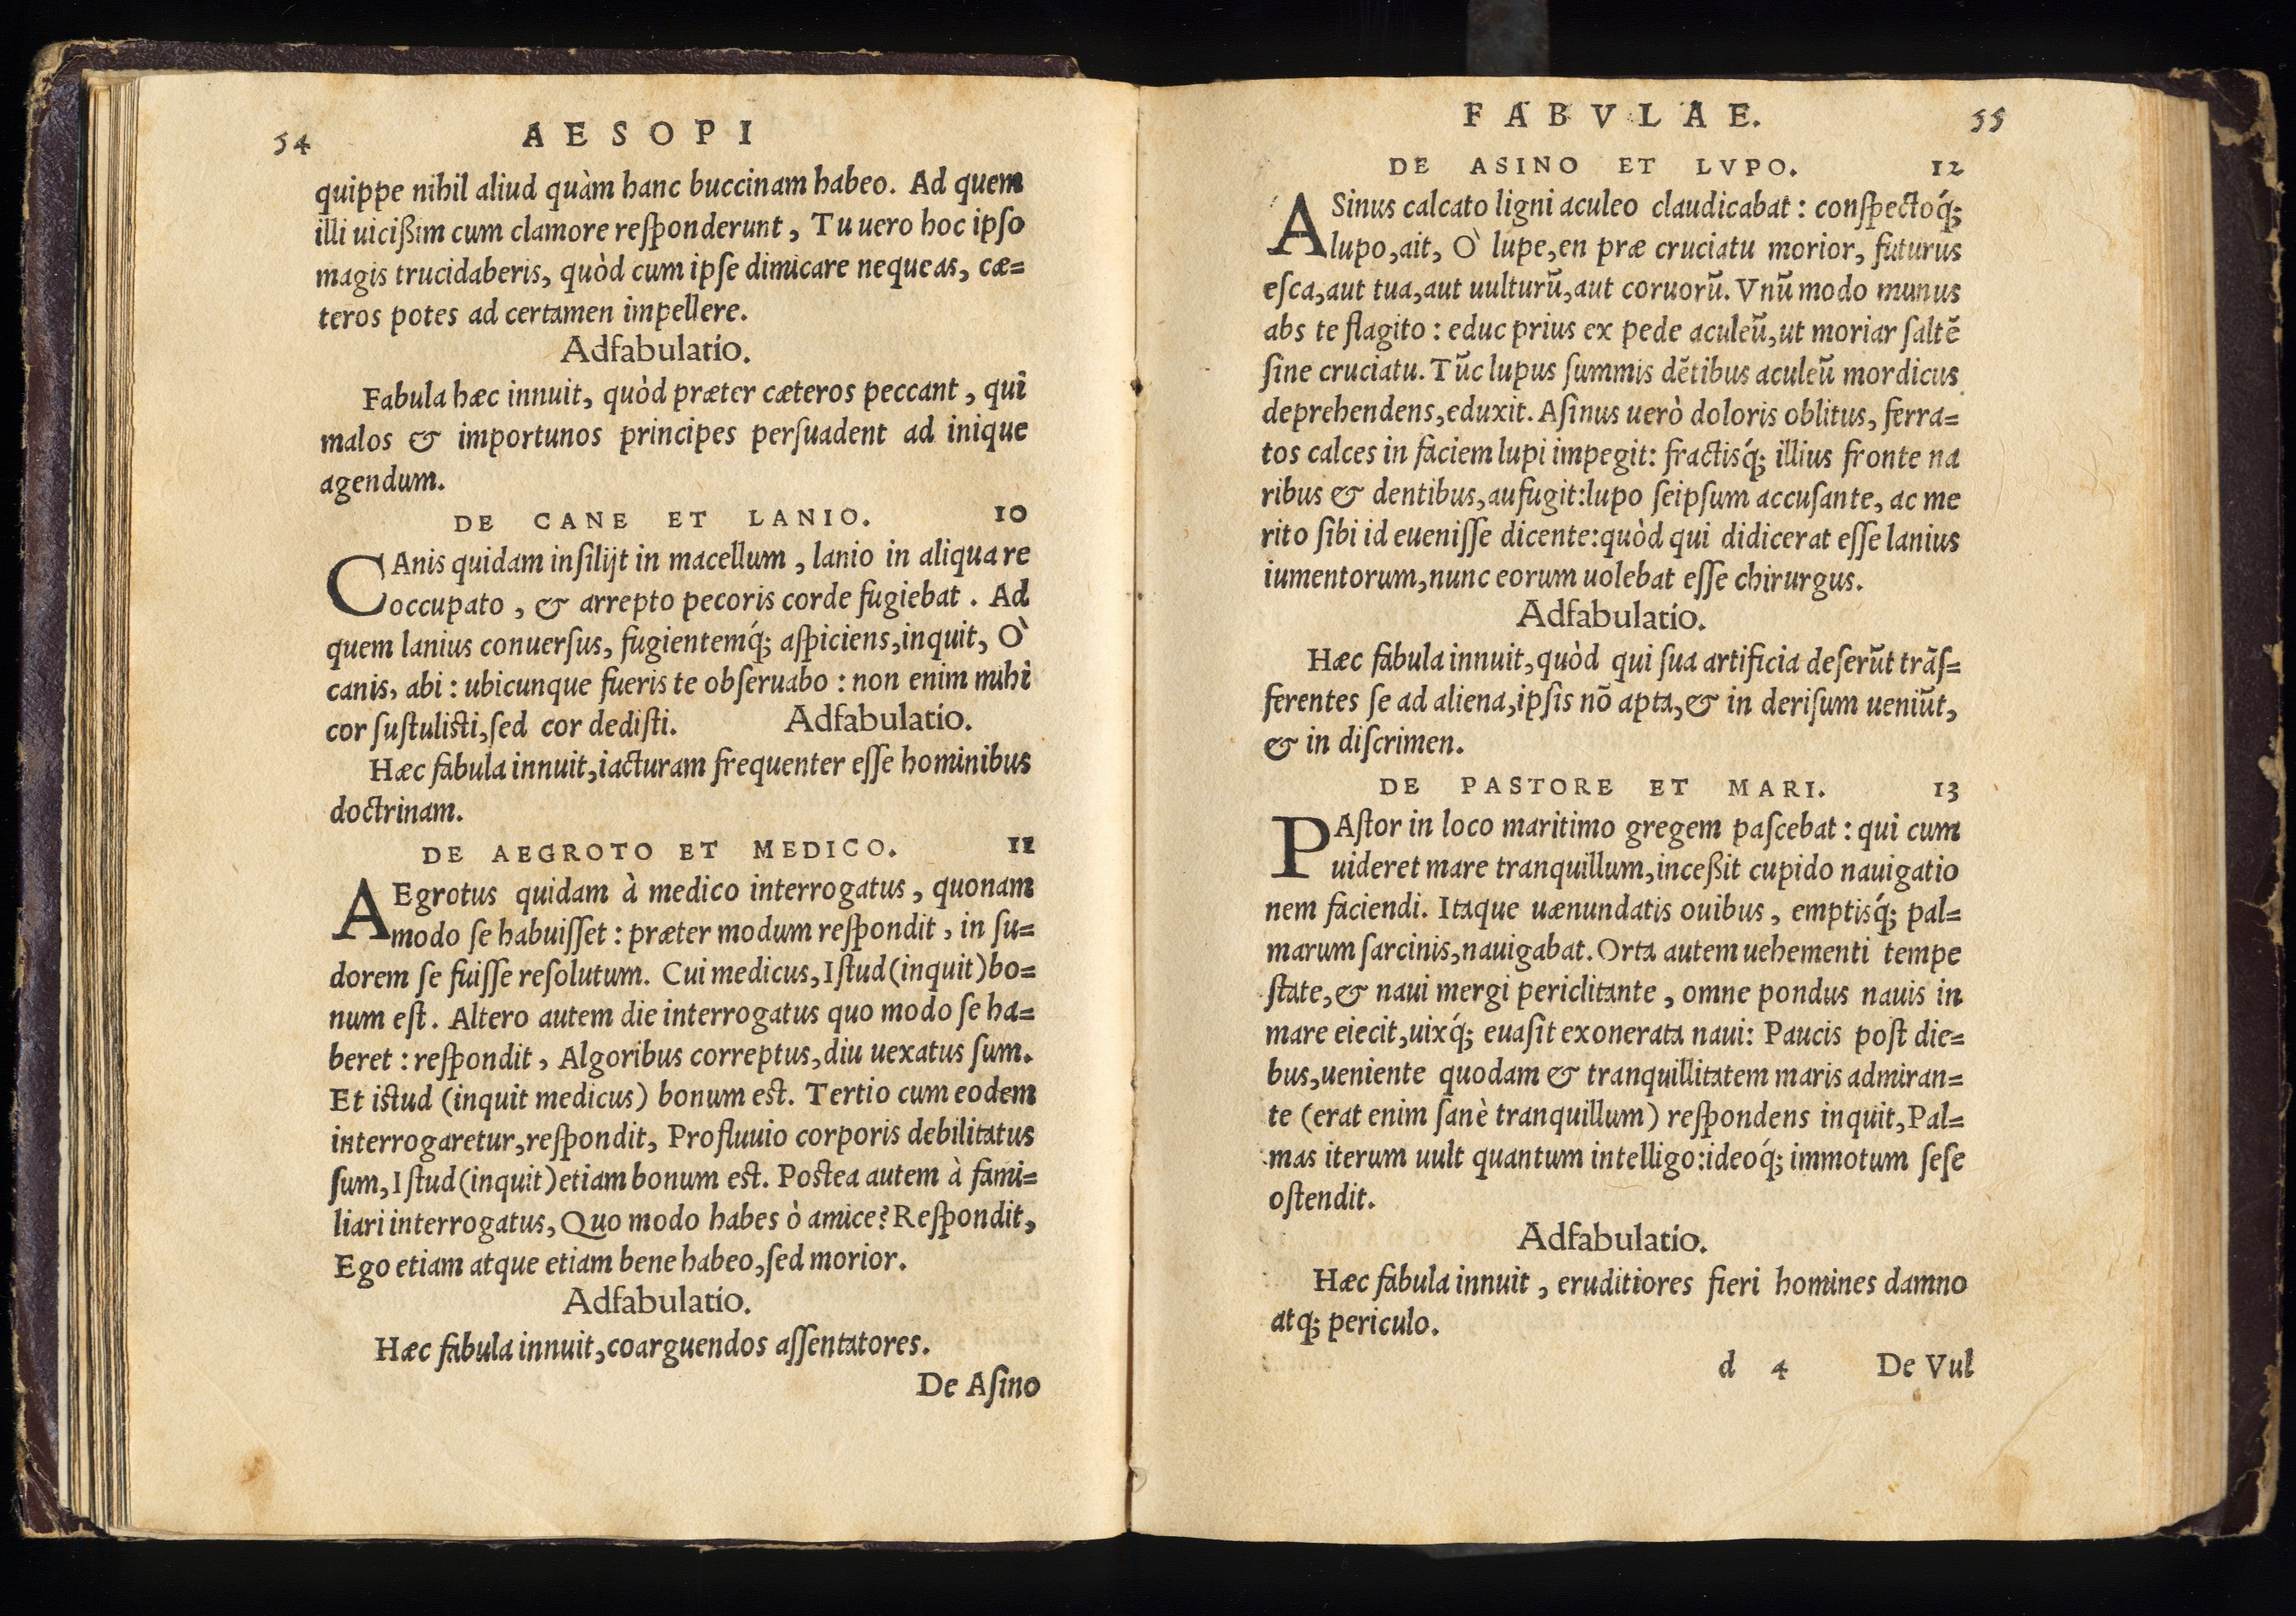 54 AESOPI
quippe nihil aliud quàm hanc buccinam habeo. Ad quem
illi uicißim cum clamore reſponderunt, Tu uero hoc ipſo
magis trucidaberis, quòd cum ipſe dimicare nequeas, cæ=
teros potes ad certamen impellere.
Adfabulatio.
Fabula hæc innuit, quòd præter cæteros peccant, qui
malos & importunos principes perſuadent ad inique
agendum.
DE CANE ET LANIO. 10
CAnis quidam inſilijt in macellum, lanio in aliqua re
occupato, & arrepto pecoris corde fugiebat. Ad
quem lanius conuerſus, fugientemq́; aſpiciens, inquit, Ò
canis, abi: ubicunque fueris te obſeruabo: non enim mihi
cor ſuſtulisti, ſed cor dediſti. Adfabulatio.
Hæc fabula innuit, iacturam frequenter eſſe hominibus
doctrinam.
DE AEGROTO ET MEDICO. 11
AEgrotus quidam à medico interrogatus, quonam
modo ſe habuiſſet: præter modum reſpondit, in ſu=
dorem ſe fuiſſe reſolutum. Cui medicus, Iſtud (inquit) bo=
num eſt. Altero autem die interrogatus quo modo ſe ha=
beret: reſpondit, Algoribus correptus, diu uexatus ſum.
Et istud (inquit medicus) bonum est. Tertio cum eodem
interrogaretur, reſpondit, Profluuio corporis debilitatus
ſum, Iſtud (inquit) etiam bonum est. Postea autem à fami=
liari interrogatus, Quo modo habes ò amice? Reſpondit,
Ego etiam atque etiam bene habeo, ſed morior.
Adfabulatio.
Hæc fabula innuit, coarguendos aſſentatores.
De Aſino
FABVLAE. 55
DE ASINO ET LVPO. 12
ASinus calcato ligni aculeo claudicabat: conſpectoq́;
lupo, ait, Ò lupe, en præ cruciatu morior, futurus
eſca, aut tua, aut uulturũ, aut coruorũ. Vnũ modo munus
abs te flagito: educ prius ex pede aculeũ, ut moriar ſaltẽ
ſine cruciatu. Tũc lupus ſummis dẽtibus aculeũ mordicus
deprehendens, eduxit. Aſinus uerò doloris oblitus, ferra=
tos calces in faciem lupi impegit: fractisq́; illius fronte na
ribus & dentibus, aufugit: lupo ſeipſum accuſante, ac me
rito ſibi id eueniſſe dicente: quòd qui didicerat eſſe lanius
iumentorum, nunc eorum uolebat eſſe chirurgus.
Adfabulatio.
Hæc fabula innuit, quòd qui ſua artificia deſerũt trãſ=
ferentes ſe ad aliena, ipſis nõ apta, & in deriſum ueniũt,
& in diſcrimen.
DE PASTORE ET MARI. 13
PAſtor in loco maritimo gregem paſcebat: qui cum
uideret mare tranquillum, inceßit cupido nauigatio
nem faciendi. Itaque uænundatis ouibus, emptisq́; pal=
marum ſarcinis, nauigabat. Orta autem uehementi tempe
ſtate, & naui mergi periclitante, omne pondus nauis in
mare eiecit, uixq́; euaſit exonerata naui: Paucis poſt die=
bus, ueniente quodam & tranquillitatem maris admiran=
te (erat enim ſanè tranquillum) reſpondens inquit, Pal=
mas iterum uult quantum intelligo: ideoq́; immotum ſeſe
oſtendit.
Adfabulatio.
Hæc fabula innuit, eruditiores fieri homines damno
atq; periculo.
d 4 De Vul